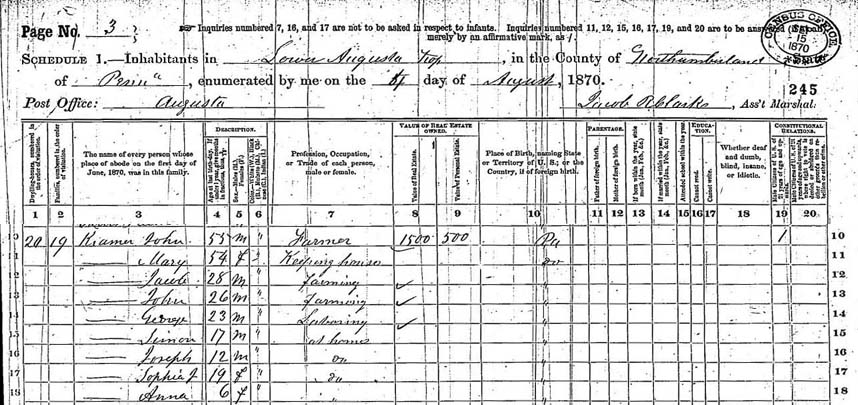 Page No. 3
☞ Inquiries numbered 7, 16, and 17 are not to be asked in respect to infants. Inquiries numbered 11, 12, 15, 16, 17, 19, and 20 are to be answered
merely by an affirmative mark, as /.
CENSUS OFFICE
15
1870
SCHEDULE 1.—Inhabitants in Lower Augusta Twp, in the County of Northumberland
of Penna, enumerated by me on the day of August, 1870.
245
Post Office: Augusta
Jacob R Clarke, Ass't Marshal.
Dwelling-houses, numbered in the order of visitation.
Families, numbered in the order of visitation.
The name of every person whose place of abode on the first day of June, 1870, was in this family.
DESCRIPTION.
Profession, Occupation, or Trade of each person, male or female.
VALUE OF REAL ESTATE OWNED.
Value of Real Estate.
Value of Personal Estate.
Place of Birth, naming State or Territory of U. S.; or the Country, if of foreign birth.
PARENTAGE.
Father of foreign birth.
Mother of foreign birth.
If born within the year, state month (Jan., Feb., &c.)
If married within the year, state month (Jan., Feb., &c.)
Attended school within the year.
EDUCATION.
Cannot read.
Cannot write.
Whether deaf and dumb, blind, insane, or idiotic.
CONSTITUTIONAL RELATIONS.
1 2 3 4 5 6 7 8 9 10 11 12 13 14 15 16 17 18 19 20
10 20 19 Kramer John 55 m " Farmer 1500 500 Pa 1 10
11 — Mary 54 f " Keeping house do 11
12 — Jacob 28 m " Farming ✓ " 12
13 — John 26 m " Farming ✓ " 13
14 — George 23 m " Laboring ✓ " 14
15 — Simon 17 m " at home " 15
16 — Joseph 12 m " do " 16
17 — Sophia J 19 f " do " 17
18 — Anna 6 f " " 18